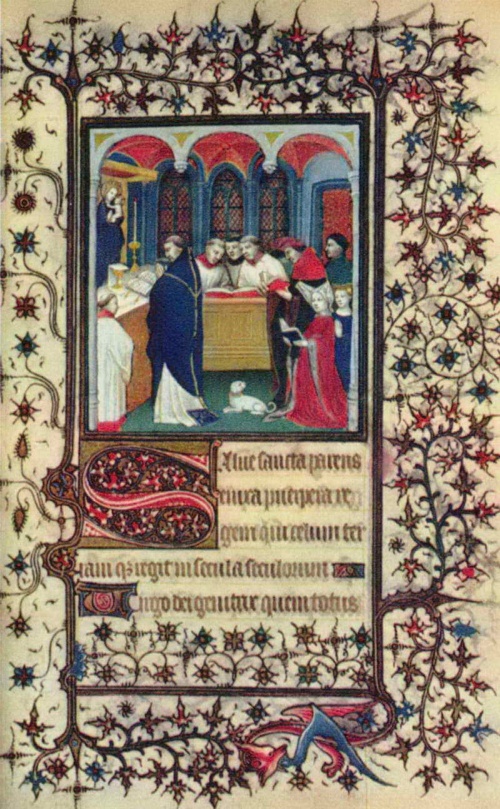 Salue sancta parens
enixa puerpera re
gem qui celum ter
ram q; regit in secula seculorum
Virgo dei genitrix quem totus